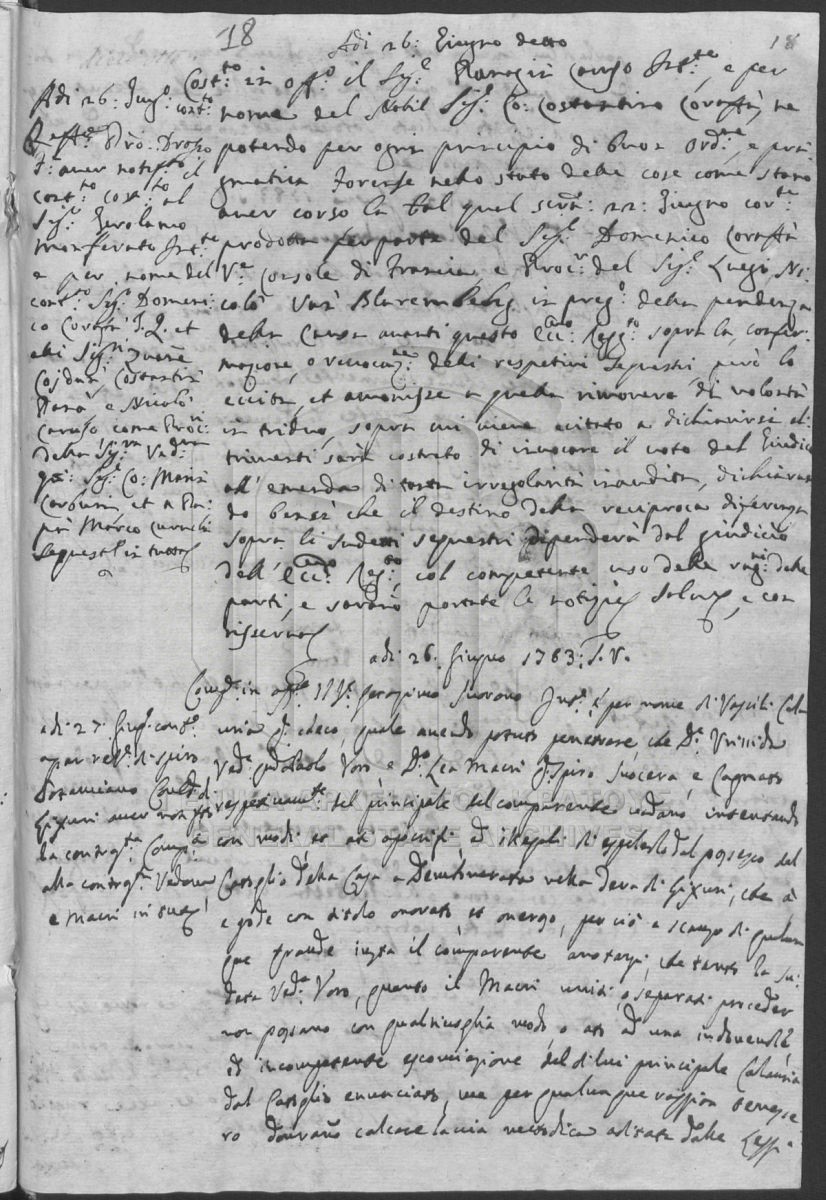 18
18
Adi 26: Giugno detto
Cost:to in off:o il Sig:r Panagin Caruso Int:te, e per
nome del Nobil Sig:r Co: Costantino Coraffà, ne
potendo per ogni principio di buon ord:ne, e pra:
gmatica forense nello stato delle cose come stano
aver corso la tal qual scra: 22: Giugno cor:te
prodotta per parte del Sig:r Domenico Coraffà
V:e Console di Francia e Proc:r del Sig:r Luegi, Ni:
colò Van in preg:o della pendenza
della Causa avanti questo Ecc:mo Regg:to sopra la confer:
mazione, o revocaz:ne delli respetivi sequestri, però lo
eccita, et amonisse a quella rimovere di volontà
in triduo, sopra cui viene ecitato a dichiarirsi al:
trimenti sarà costreto di invocare il voto del Giudice
all' emenda di tanta irregolarità inaudita, dichiaran
do bensì che il destino della reciproca diferenza
sopra li sudetti sequestri dipenderà dal giudicio
dell' Ecc:mo Reg:to, col competente uso delle rag:ni delle
parti, e sarano portate le notizie, salvis, e con
risserva
Adi 26: Giug:o cort:e
Reff:e Dro: Drosso
d: aver notif:to il
cont:to cost:to al
Sig:r Gerolamo
Monferato Int:te
e per nome del
cont:to Sig:r Domeni:
co Coraffà F. Q. et
alli Sig:ri Zuanne
Cosdari, Costantin
e Nicolò
Caruso come Proc:ri
della Sig:ra Ved:va
q: Sig:r Co: Marin
Carburi, et a Pa:
pà Marco
sequest:ri in tutto
adi 26: Giugno 1763: S.V.
Comp:e in off:o Ill:e Sig:r Gerasimo Suvano Int:e e per nome di Vassili Cala
uria q: , quale avendo potuto penetrare, che D:a
Ved:a q:m Paolo Voro e D:o Lea Macri q: Spiro suocera, e Cognato
respetivam:te del principale del comparente vadano intentando
con modi et ati apocrifi ed illegali di espelerlo dal possesso del
Casiglio della Casa a nella Terra di Lixuri, che à
e gode con titolo onorato et oneroso, perciò a scanso di qualun
que fraude insta il comparente anotarsi, che tanto la su:
data Ved:a Voro, quanto il Macri uniti, o separati proceder
non possano con qualsivoglia modo, o ato ad una indovendle
ed incompetente escomiazione del di lui principale Calauria
dal Casiglio enunciato, ma per qualunque raggion tenesse
ro dovrano calcare la via metodica aditata dalle Leggi
adi 27 Giug:o cont:o
apar rel:e di Spiro
Potamiano Com:r di
Lixuri aver notif:to
la contrq:ta Comp:a
alla contrq:ta Vedova
e Macri in tutto